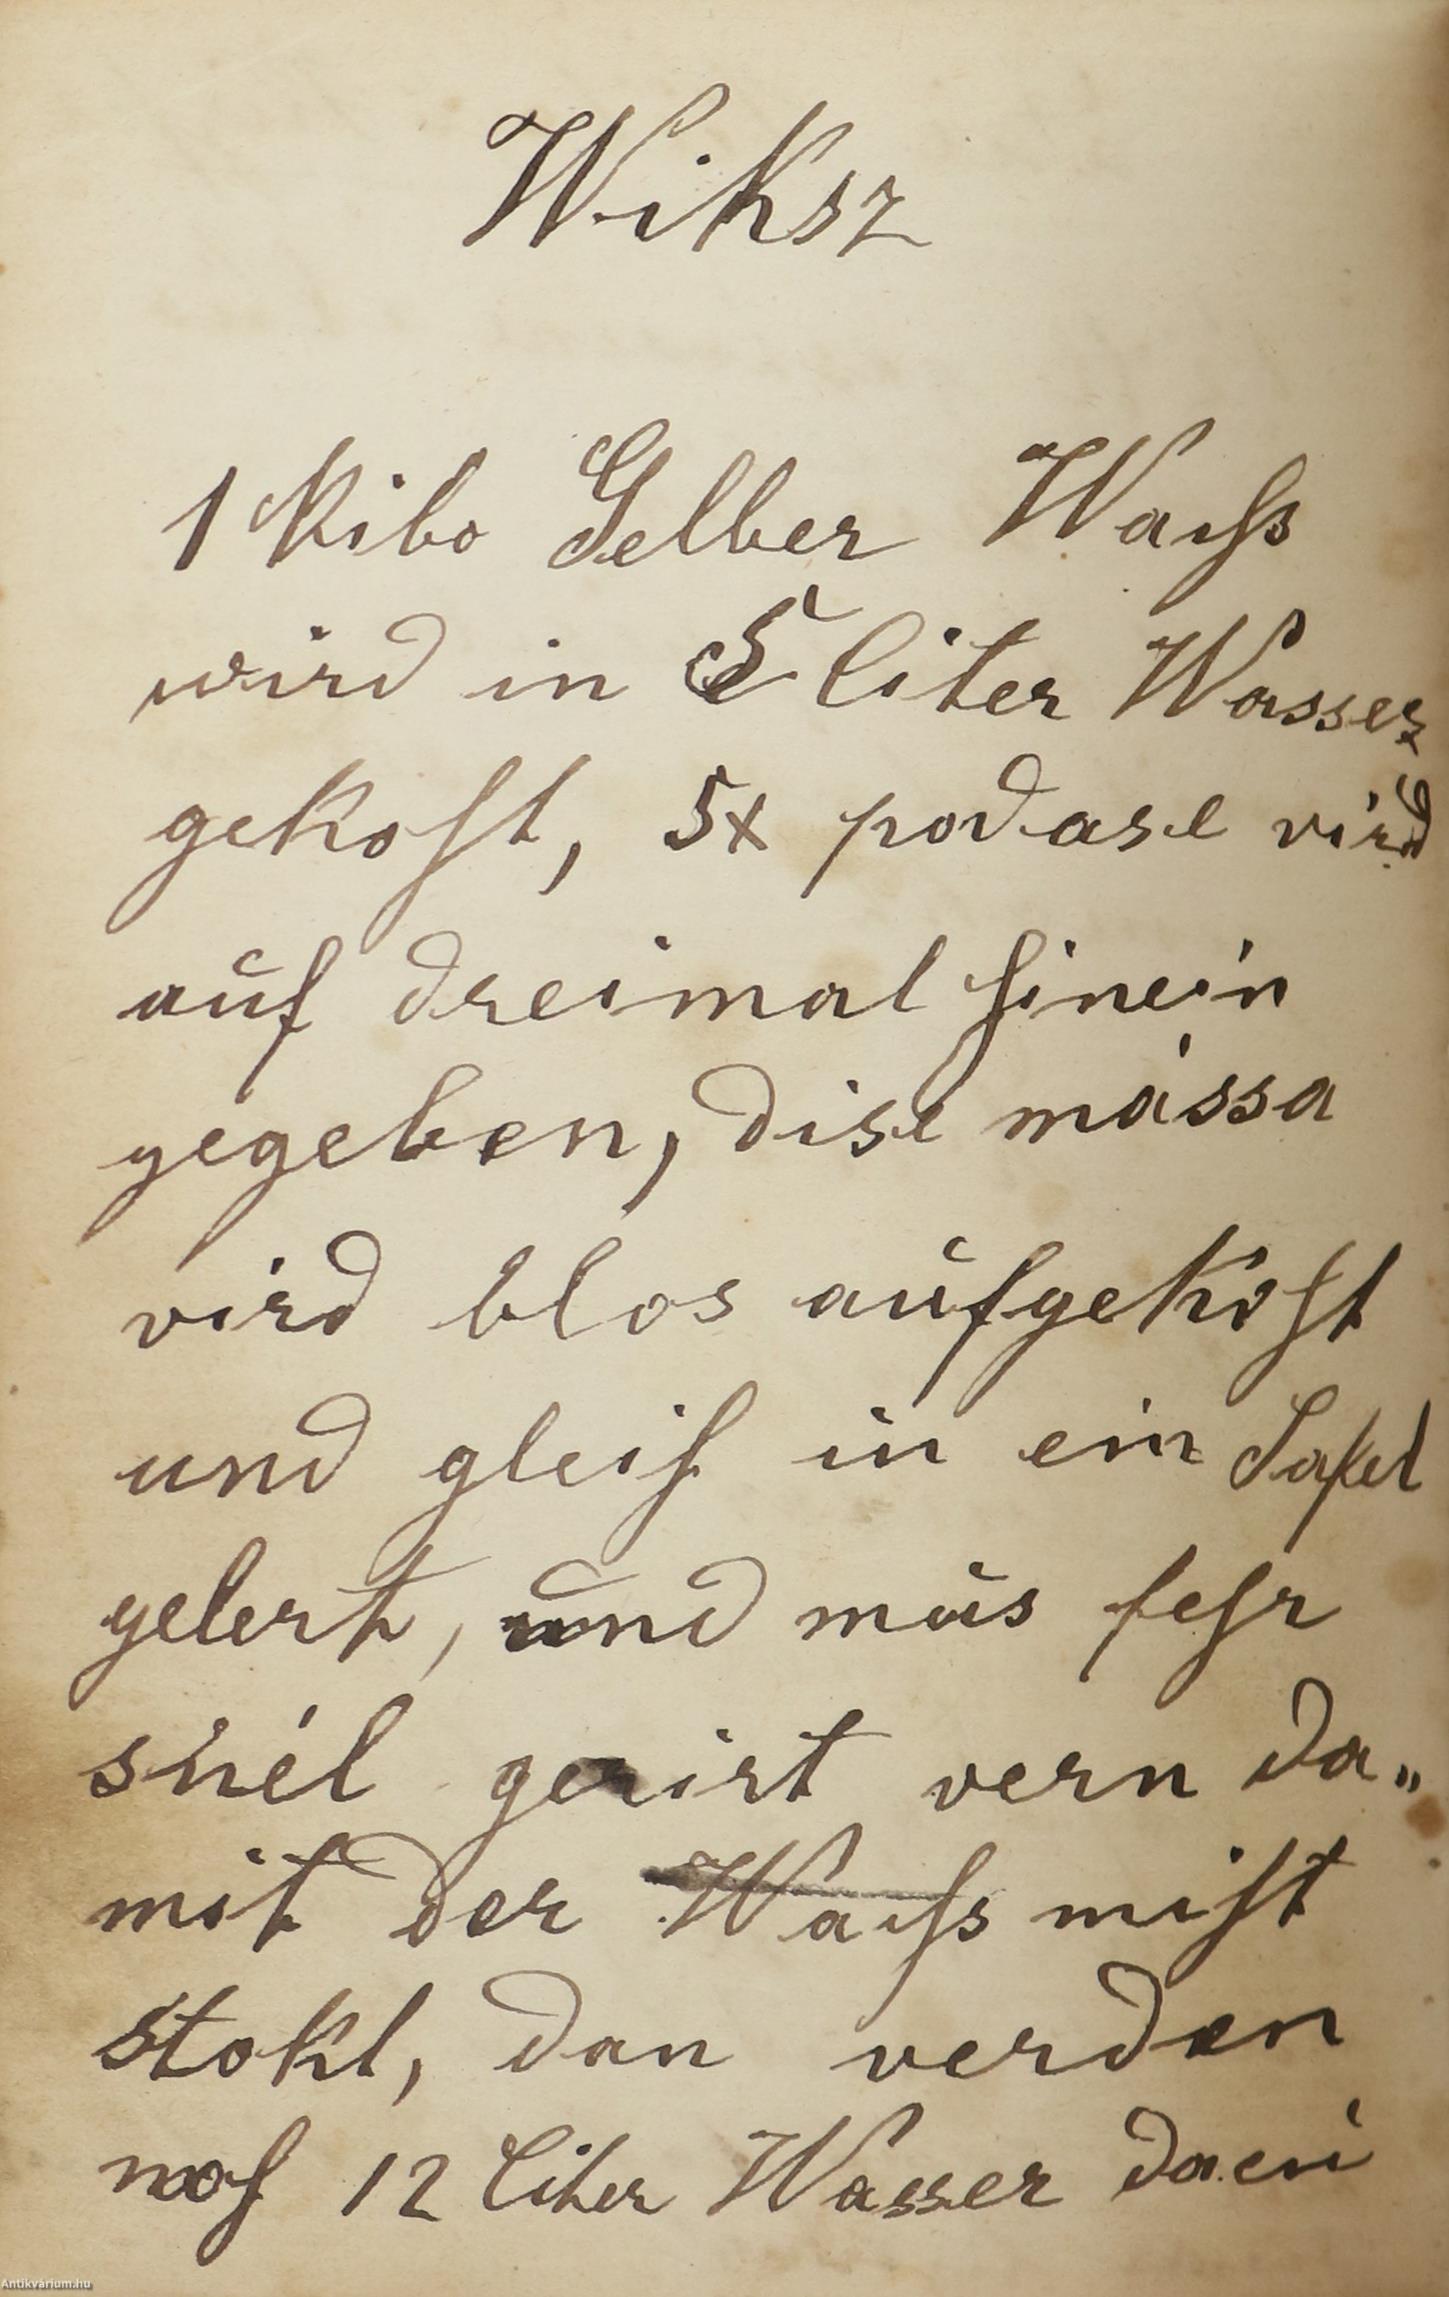 Wiksz
1 Kilo Gelber Wachs
wird in 5 liter Wasser
gekocht, 5x podase vird
auf dreimal hinein
gegeben, dise mássa
vird blos aufgekocht
und gleich in ein Safel
gelert, und mus sehr
snél gerirt vern da„
mit der Wachs nicht
stokt, dan verden
noch 12 liter Wasser darein
Antikvárium.hu